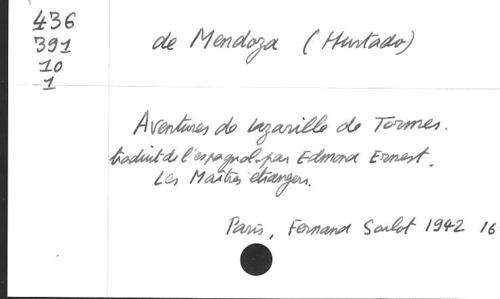 436
391
10
1
de Mendoza (Hurtado)
Aventures de Lazarille de Tormes.
traduit de l'espagnol par Edmond Ernest.
Les Maîtres étrangers.
Paris, Fernand Sorlot 1942 16